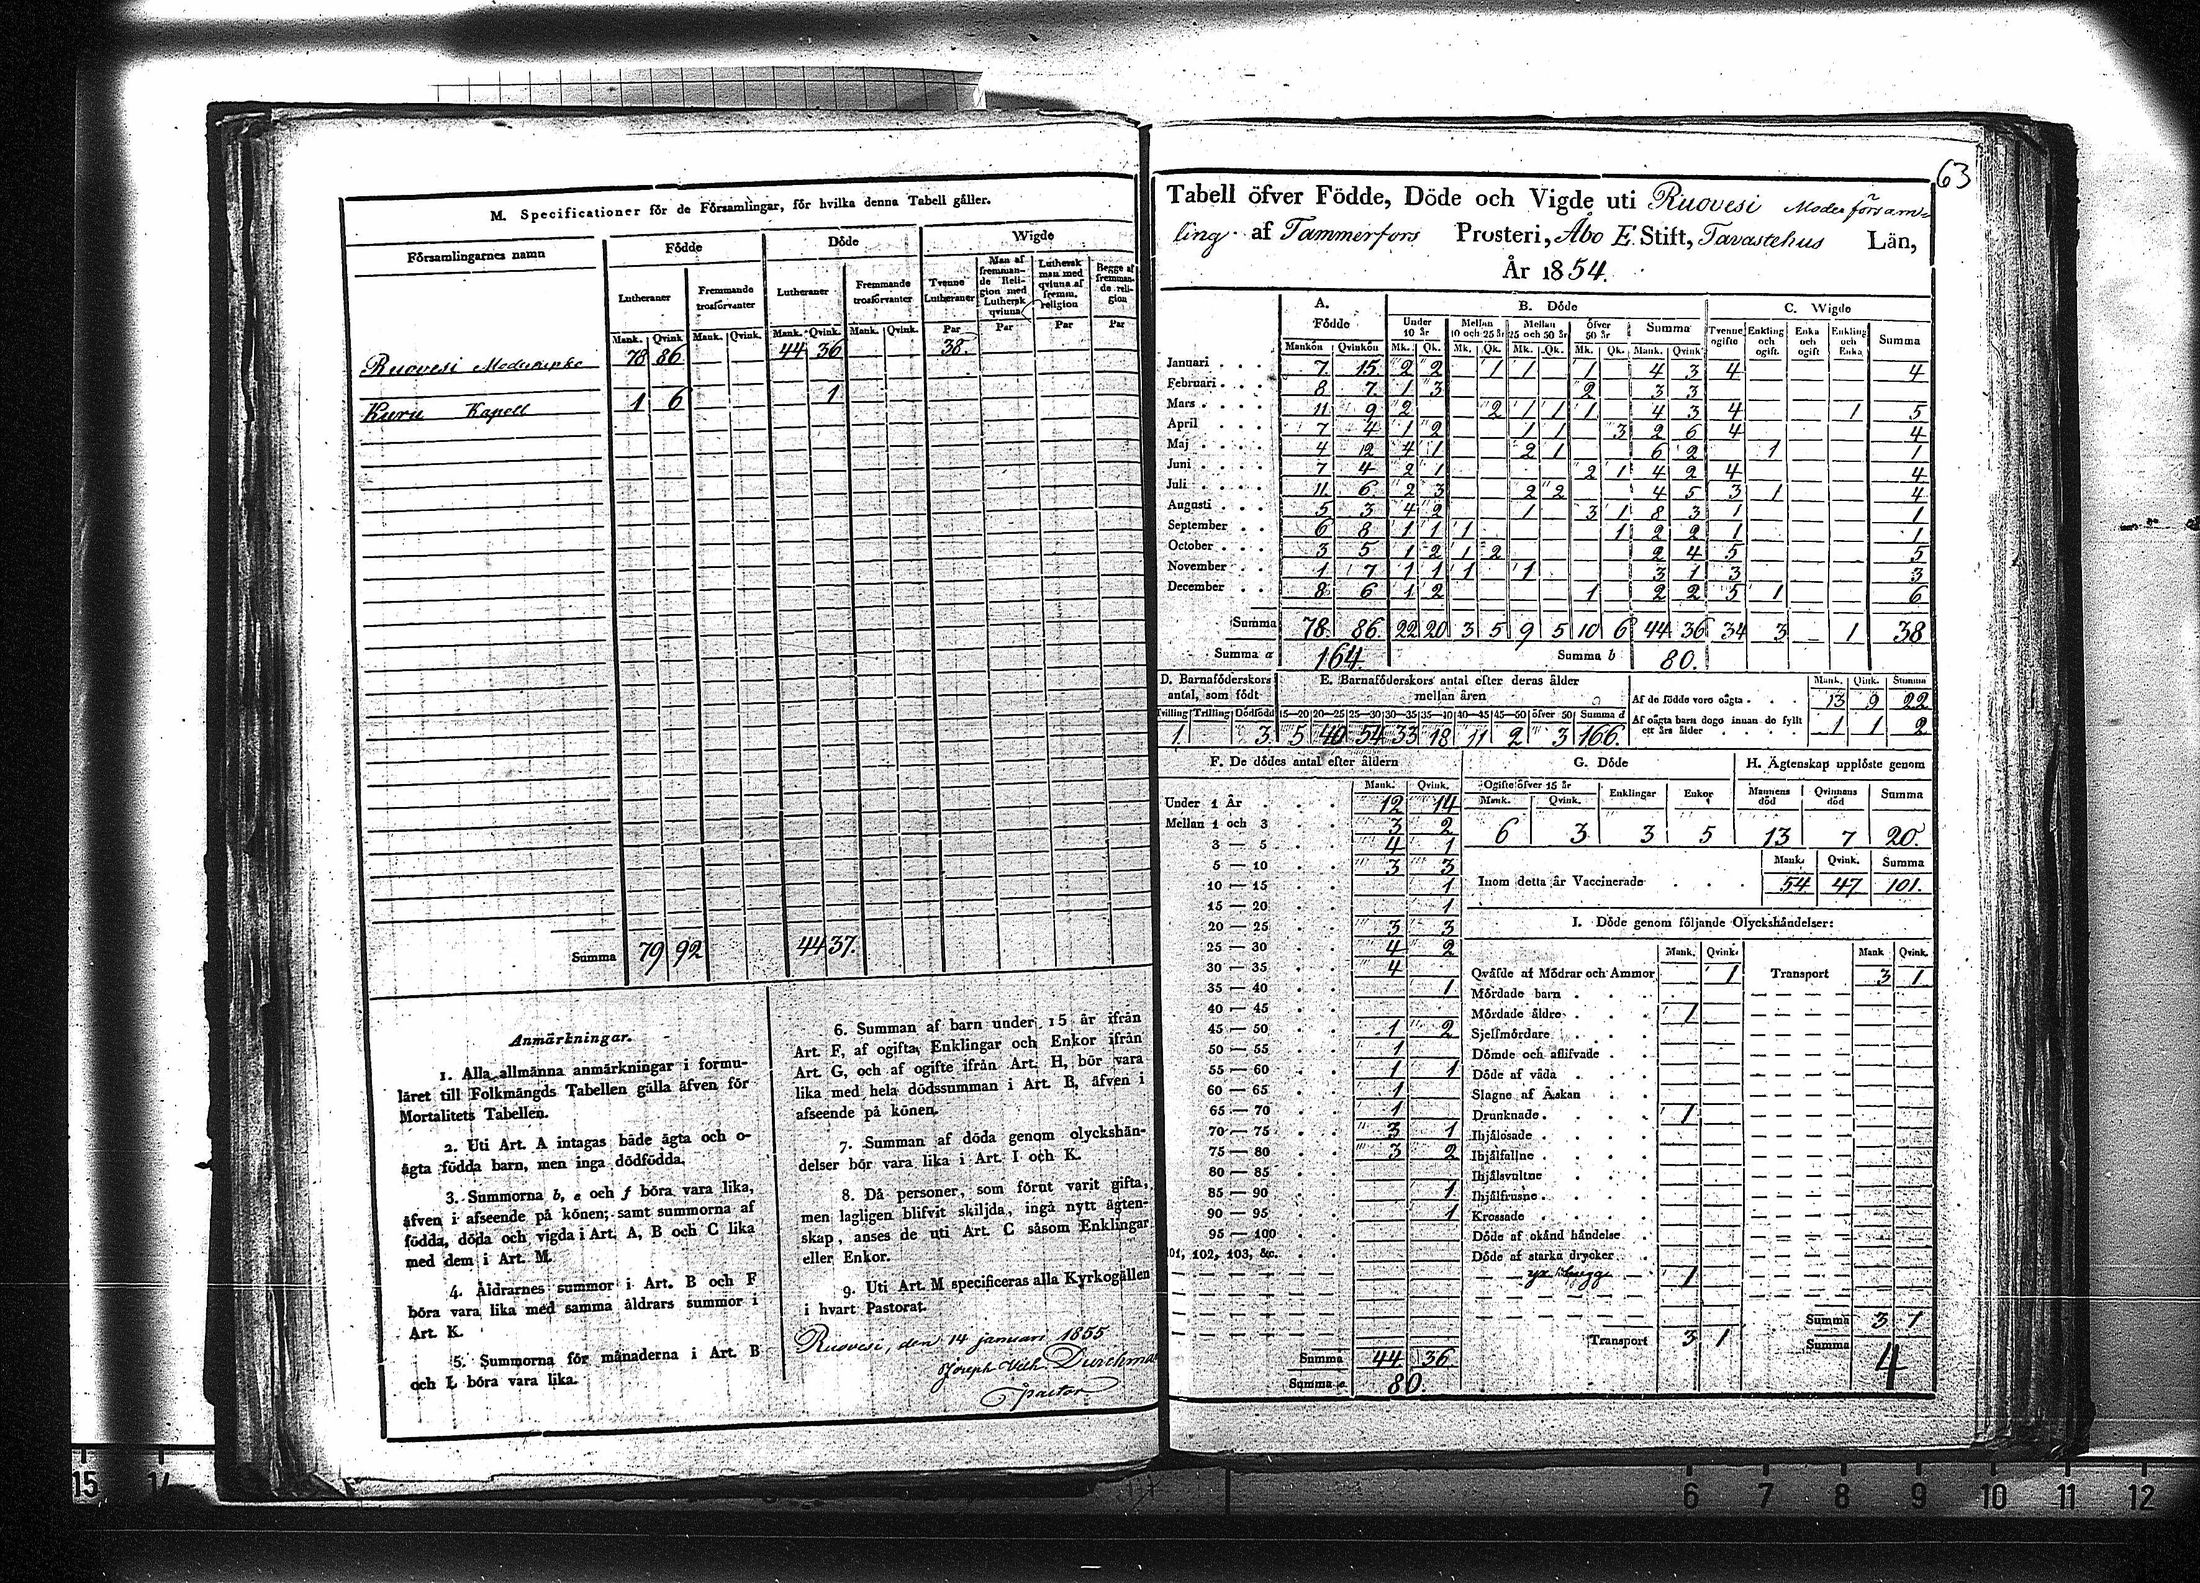 M. Specificationer för de Församlingar, för hvilka denna Tabell gäller.
Församlingarnes namn | Födde | Döde | Wigde
Lutheraner | Fremmande trosförvanter | Lutheraner | Fremmande trosförvanter | Tvenne Lutheraner | Man af fremmande Religion med Luthersk qvinna | Luthersk man med qvinna af fremm. religion | Begge af fremmande religion
Mank. | Qvink | Mank. | Qvink. | Mank. | Qvink. | Mank. | Qvink. | Par | Par | Par | Par
Ruovesi | 78 | 86 | 44 | 36 | 38.
Kuru Kapell | 1 | 6 | 1
Summa | 79 | 92 | 44 | 37.
Anmärkningar.
1. Alla allmänna anmärkningar i formu-
läret till Folkmängds Tabellen gälla äfven för
Mortalitets Tabellen.
2. Uti Art. A intagas både ägta och o-
ägta födda barn, men inga dödfödda.
3. Summorna b, e och f böra vara lika,
äfven i afseende på könen; samt summorna af
födda, döda och vigda i Art. A, B och C lika
med dem i Art. M.
4. Åldrarnes summor i Art. B och F
böra vara lika med samma åldrars summor i
Art. K.
5. Summorna för månaderna i Art. B
och L böra vara lika.
6. Summan af barn under 15 år ifrån
Art. F, af ogifta, Enklingar och Enkor ifrån
Art. G, och af ogifte ifrån Art. H, bör vara
lika med hela dödssumman i Art. B, äfven i
afseende på könen.
7. Summan af döda genom olyckshän-
delser bör vara lika i Art. I och K.
8. Då personer, som förut varit gifta,
men lagligen blifvit skiljda, ingå nytt ägten-
skap, anses de uti Art. C såsom Enklingar
eller Enkor.
9. Uti Art. M specificeras alla Kyrkogällen
i hvart Pastorat.
Ruovesi, den 14 januari 1855
Joseph Wilh. Durchma
pastor
63
Tabell öfver Födde, Döde och Vigde uti Ruovesi Moderförsam-
ling af Tammerfors Prosteri, Åbo E. Stift, Tavastehus Län,
År 1854.
A. Födde | B. Döde | C. Wigde
Under 10 år | Mellan 10 och 25 år | Mellan 25 och 50 år | Öfver 50 år | Summa | Tvenne ogifte | Enkling och ogift. | Enka och ogift | Enkling och Enka | Summa
Mankön | Qvinkön | Mk. | Qk. | Mk. | Qk. | Mk. | Qk. | Mk. | Qk. | Mank. | Qvink
Januari | 7 | 15 | 2 | 2 | 1 | 1 | 1 | 4 | 3 | 4 | 4
Februari | 8 | 7 | 1 | 3 | 2 | 3 | 3
Mars | 11 | 9 | 2 | 2 | 1 | 1 | 1 | 4 | 3 | 4 | 1 | 5
April | 7 | 4 | 1 | 2 | 1 | 1 | 3 | 2 | 6 | 4 | 4
Maj | 4 | 12 | 4 | 1 | 2 | 1 | 6 | 2 | 1 | 1
Juni | 7 | 4 | 2 | 1 | 2 | 1 | 4 | 2 | 4 | 4
Juli | 11 | 6 | 2 | 3 | 2 | 2 | 4 | 5 | 3 | 1 | 4
Augusti | 5 | 3 | 4 | 2 | 1 | 3 | 1 | 8 | 3 | 1 | 1
September | 6 | 8 | 1 | 1 | 1 | 1 | 2 | 2 | 1 | 1
October | 3 | 5 | 1 | 2 | 1 | 2 | 2 | 4 | 5 | 5
November | 1 | 7 | 1 | 1 | 1 | 1 | 3 | 1 | 3 | 3
December | 8 | 6 | 1 | 2 | 1 | 2 | 2 | 5 | 1 | 6
Summa | 78. | 86. | 22 | 20 | 3 | 5 | 9 | 5 | 10 | 6 | 44 | 36 | 34 | 3 | 1 | 38
Summa a 164. | Summa b 80.
D. Barnaföderskors antal, som födt | E. Barnaföderskors antal efter deras ålder mellan åren
Tvilling | Trilling | Dödfödd | 15—20 | 20—25 | 25—30 | 30—35 | 35—40 | 40—45 | 45—50 | öfver 50 | Summa d
1. | 3. | 5 | 40 | 54 | 33 | 18 | 11 | 2 | 3 | 166.
Mank. | Qink. | Summa
Af de födde voro oägta | 13 | 9 | 22
Af oägta barn dogo innan de fyllt ett års ålder | 1 | 1 | 2
F. De dödes antal efter åldern
Mank. | Qvink.
Under 1 År | 12 | 14
Mellan 1 och 3 | 3 | 2
3 — 5 | 4 | 1
5 — 10 | 3 | 3
10 — 15 | 1
15 — 20 | 1
20 — 25 | 3 | 3
25 — 30 | 4 | 2
30 — 35 | 4
35 — 40 | 1
40 — 45
45 — 50 | 1 | 2
50 — 55 | 1
55 — 60 | 1 | 1
60 — 65 | 1
65 — 70 | 1
70 — 75 | 3 | 1
75 — 80 | 3 | 2
80 — 85
85 — 90 | 1
90 — 95 | 1
95 — 100
101, 102, 103, &c.
Summa | 44 | 36
Summa e. 80.
G. Döde
Ogifte öfver 15 år | Enklingar | Enkor
Mank. | Qvink.
6 | 3 | 3 | 5
H. Ägtenskap upplöste genom
Mannens död | Qvinnans död | Summa
13 | 7 | 20.
Mank. | Qvink. | Summa
Inom detta år Vaccinerade | 54 | 47 | 101.
I. Döde genom följande Olyckshändelser:
Mank. | Qvink. | Mank | Qvink.
Qväfde af Mödrar och Ammor | 1 | Transport | 3 | 1
Mördade barn
Mördade äldre | 1
Sjelfmördare
Dömde och aflifvade
Döde af våda
Slagne af Åskan
Drunknade | 1
Ihjälosade
Ihjälfallne
Ihjälsvultne
Ihjälfrusne
Krossade
Döde af okänd händelse
Döde af starka drycker
1
Summa | 3 | 1
Transport | 3 | 1 | Summa | 4
15 14 6 7 8 9 10 11 12